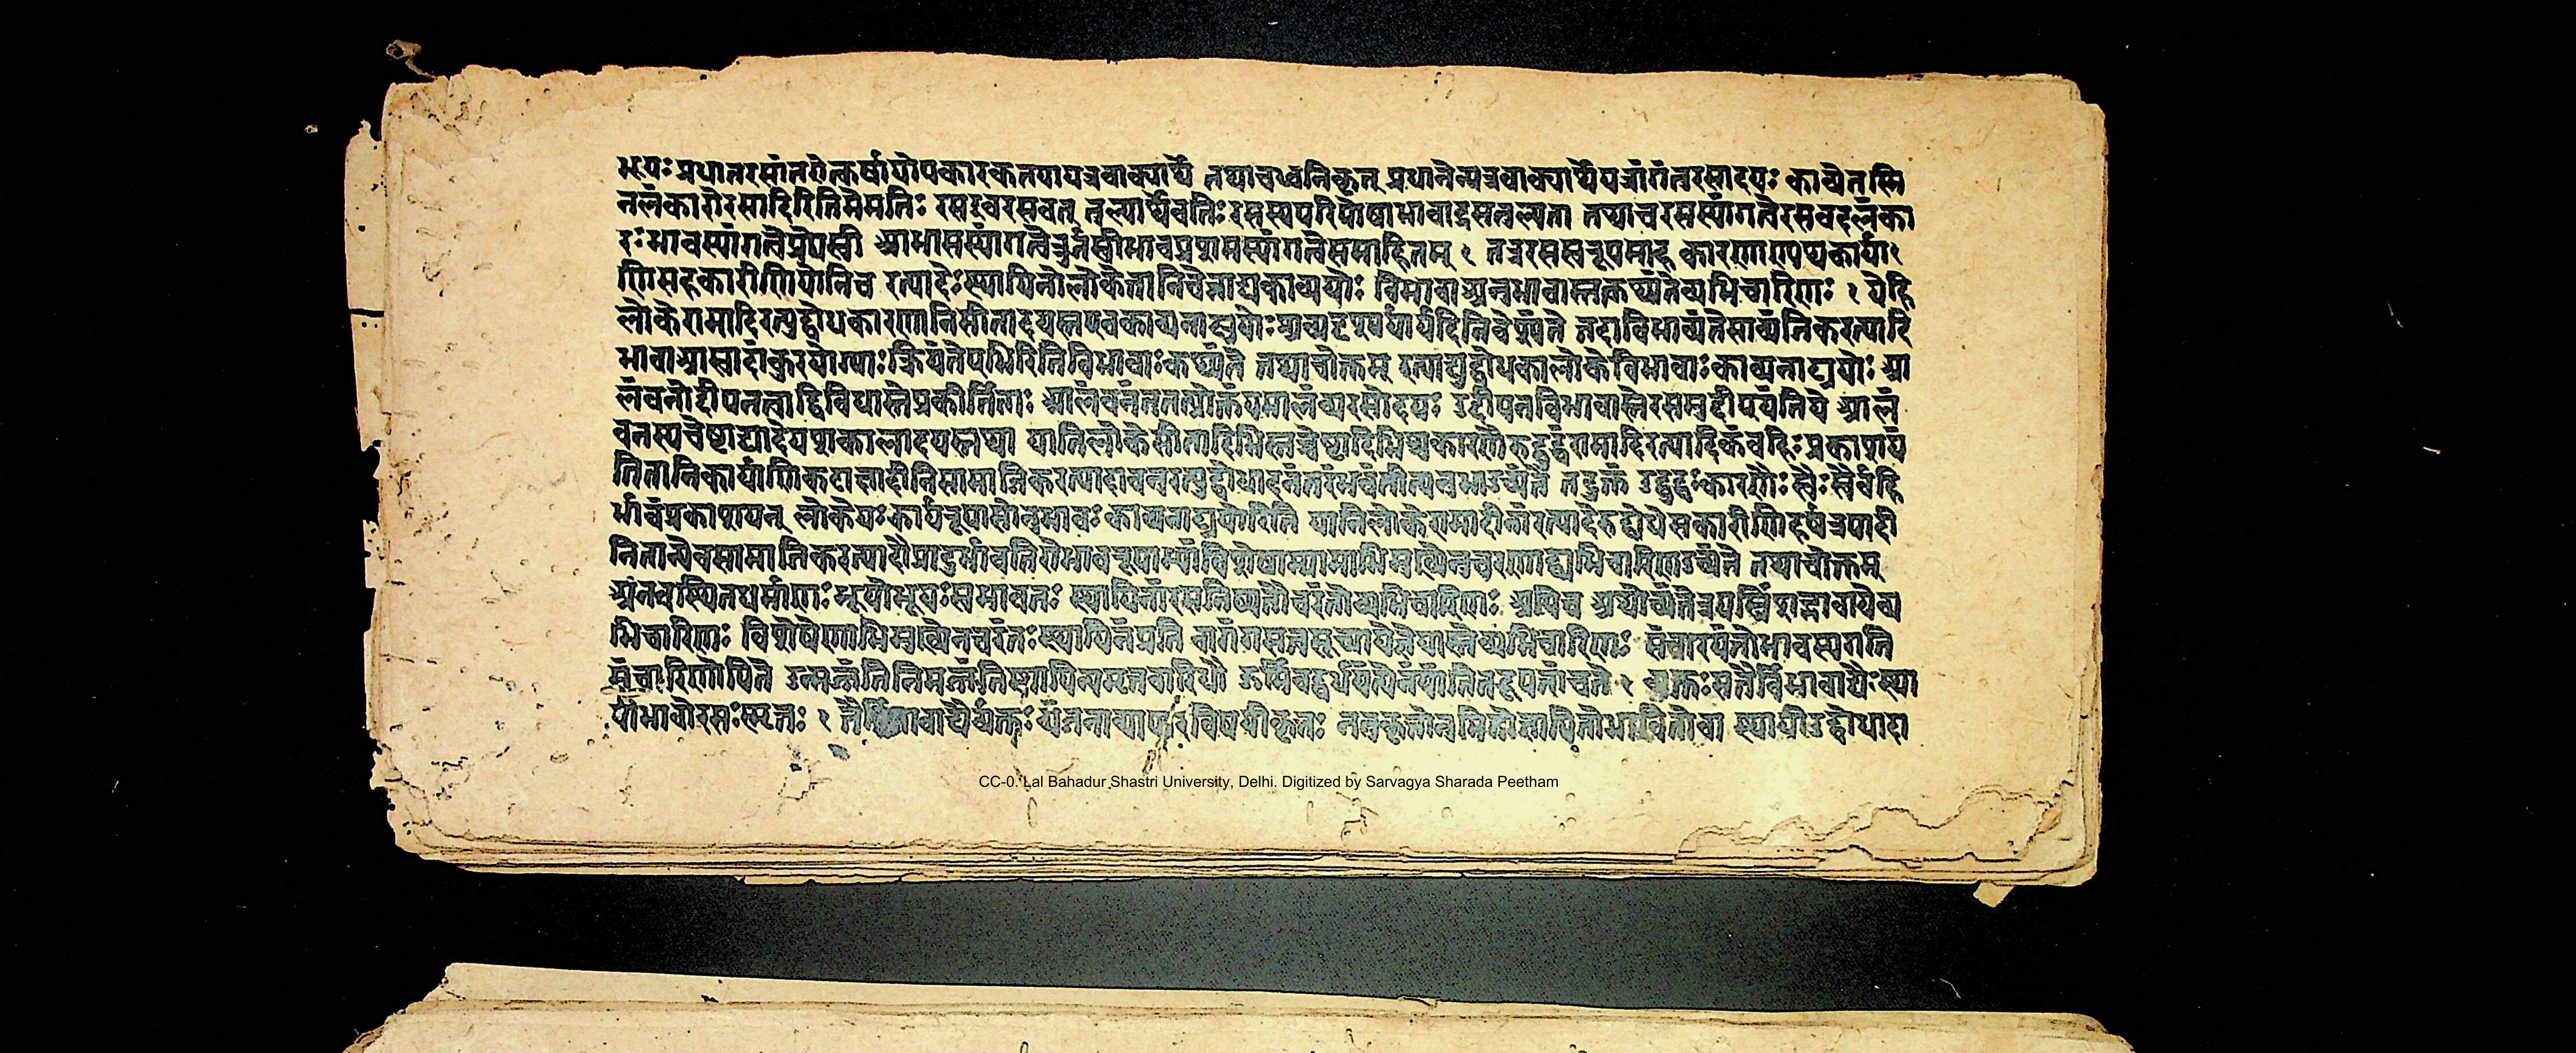 भूयः प्रधानरसांतरोत्कर्षायोपकारकतयायत्रवाक्यार्थे तथाचध्वनिकृत् प्रधानेन्यत्रवाक्यार्थेयत्रांगंतुरसादयः काव्येतस्मि
नलंकारोरसादिरितिमेमतिः रसइवरसवत् तुल्यार्थेवतिः रसस्यपरिपोषाभावाद्रसतुल्यता तथाचरसस्यांगत्वेरसवदलंका
रः भावस्यांगत्वेप्रेयस्वी आभासस्यांगत्वेऊर्जस्वीभावप्रशमस्यांगत्वेसमाहितम् १ तत्ररसस्वरूपमाह कारणाण्यथकार्या
णिसहकारीणियानिच रत्यादेः स्थायिनोलोकेतानिचेन्नाट्यकाव्ययोः विभावाअनुभावास्तत्कथ्यंतेव्यभिचारिणः १ येहि
लोकेरामादिरत्युद्बोधकारणानिसीतादयस्तएवकाव्यनाट्ययोः निवेश्यंते तदाविभाव्यंतेसाव्यंनिकरत्यादि
भावाआस्वादांकुरयोग्याः क्रियंतेएभिरितिविभावाः कथ्यंते तथाचोक्तम् रत्याद्युद्बोधकालोकेविभावाः काव्यनाट्ययोः आ
लंबनोद्दीपनत्वाद्द्विविधास्तेप्रकीर्तिताः आलंबनंतुतत्प्रोक्तंयमालंब्यरसोदयः उद्दीपनविभावास्तेरसमुद्दीपयंतिये आलं
बनस्यचेष्टाद्यादेशकालादयस्तथा यानिलोकेसीतादिभिस्तच्चेष्टादिभिश्चकारणैरुद्बुद्धंरामादिरत्यादिकंबहिः प्रकाशय
तितानिकार्याणिकटाक्षादीनिसामाजिकरत्यादावनुरत्युद्बोधादनंतरंभवंतीत्यनुभाउच्यंते तदुक्तं उद्बुद्धः कारणैः स्वैः स्वैर्बहि
र्भावंप्रकाशयन् लोकेयः कार्यरूपः सोनुभावः काव्यनाट्ययोरिति यानिलोकेरामादीनांरत्यादेरुद्बोधेसकारीणिहर्षत्रपादी
नितान्येवसामाजिकरत्यादौप्रादुर्भावतिरोभावरूपाभ्यांविशेषाभ्यामाभिमुख्येनचरणाद्व्यभिचारिणउच्यंते तथाचोक्तम्
अनवस्थितधर्माणः भूयोभूयः स्वभावतः स्थायिनांरसनिष्पत्तौचरंतोव्यभिचारिणः अपिच अथोच्यंतेत्रयस्त्रिंशद्भावायेव्य
भिचारिणः विशेषेणाभिमुख्येनचरंतः स्थायिनंप्रति वागंगसत्वसूच्यायेज्ञेयास्तेव्यभिचारिणः संचारयंतोभावस्यगति
संचारिणोपिते उन्मज्जंतिनिमज्जंतिस्थायिन्यमृतवारिधौ ऊर्मिवद्वर्धयंत्येनंयांतितद्रूपतांचते १ व्यक्तः सतैर्विभावाद्यैः स्था
यीभावोरसः स्मृतः १ तैर्विभावाद्यैर्व्यक्तः व्यंजनाव्यापारविषयीकृतः नतुकृतोनुमितोज्ञापितोभावितोवा स्थायीउद्बोधादा
CC-0. Lal Bahadur Shastri University, Delhi. Digitized by Sarvagya Sharada Peetham